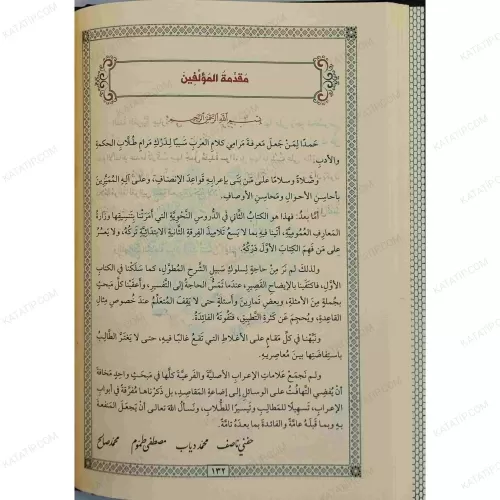 مُقَدِّمَةُ المُؤَلِّفِين
بِسْمِ اللهِ الرَّحْمٰنِ الرَّحِيمِ
حَمدًا لِمَنْ جَعلَ مَعرفةَ مَرَامِي كلامِ العربِ سَببًا لِدَرْكِ مَرامِ طُلَّابِ الحكمةِ
والأدبِ.
وصَلاةً وسلامًا علَى مَن بَنَى بإعرابِهِ قَواعِدَ الإنصافِ، وعلَى آلِهِ المُمَيَّزِينَ
بأحاسِنِ الأحوالِ ومَحاسِنِ الأوصافِ.
أمَّا بعدُ: فهذا هو الكتابُ الثَّاني في الدُّروسِ النَّحْوِيَّةِ التي أَمَرَتْنا بِتَنسِيقِها وِزارةُ
المَعارفِ العُمُومِيَّةِ، أتَينا فيهِ بما لا يَسعُ تلاميذَ الفِرقةِ الثَّانيةِ الابتدائيَّةِ تَركُهُ، ولا يَعسُرُ
علَى مَن فَهِمَ الكتابَ الأوَّلَ دَرْكُهُ.
ولذلكَ لم نَرَ مِنْ حاجةٍ لِسلوكِ سَبيلِ الشَّرحِ المُطوَّلِ، كما سَلَكْنا في الكتابِ
الأوَّلِ، فاكتَفَينا بالإيضاحِ القَصيرِ، عندَما تَمَسُّ الحاجةُ إلى التَّفسيرِ، وأَعقَبْنا كلَّ مَبحَثٍ
بجُملةٍ مِنَ الأمثلةِ، وبعضِ تَمارينَ وأسئلةٍ حتى لا يَقِفَ المُتعلِّمُ عندَ خصوصِ مِثالِ
القاعِدةِ، ويُحجِمَ عن كَثرةِ التَّطبيقِ، فتَفُوتَهُ الفائدةُ.
ونَبَّهْنا في كلِّ مقامٍ علَى الأغلاطِ التي تَقعُ غالبًا فيهِ، حتى لا يَغتَرَّ الطَّالبُ
باستِفاضَتِها بينَ مُعاصِرِيهِ.
ولم نَجمَعْ عَلاماتِ الإعرابِ الأصليَّةَ والفَرعيَّةَ كلَّها في مَبحَثٍ واحدٍ مَخافةَ
أنْ يُفضِيَ التَّهافُتُ علَى الوسائلِ إلى إضاعةِ المَقاصِدِ، بل ذكَرناها مُفرَّقةً في أبوابِ
الإعرابِ، تَسهيلًا لِلمَطالِبِ وتَيسيرًا لِلطُّلَّابِ، ونَسألُ اللهَ تعالى أنْ يَجعلَ المَنفعةَ
بهِ وبما قَبلَهُ عامَّةً والفائدةَ بما بعدَهُ تامَّةً.
حفني ناصف محمد دياب مصطفى طموم محمد صالح
١٣٢
KATATIP.COM